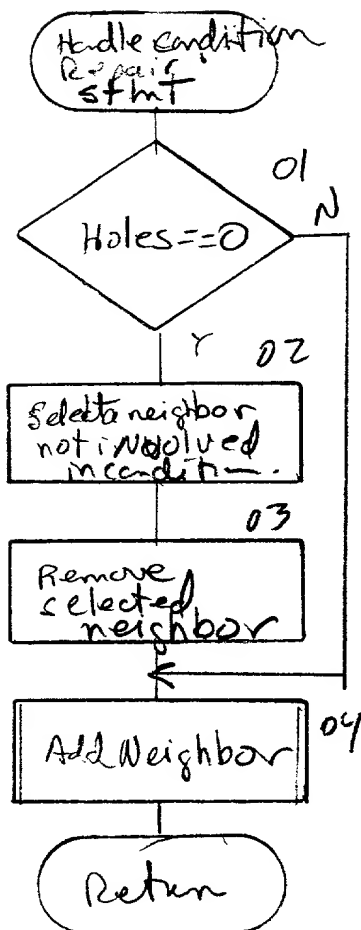 Handle condition
Repair
stmT
01
Holes==0
N
Y
02
Select a neighbor
not involved
in condition.
03
Remove
selected
neighbor
Add Neighbor
04
Return